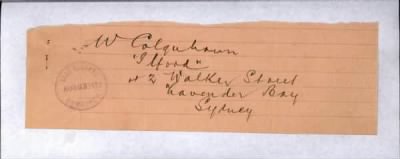 W Colquhoun
"Ilford"
42 Walker Street
Lavender Bay
Sydney